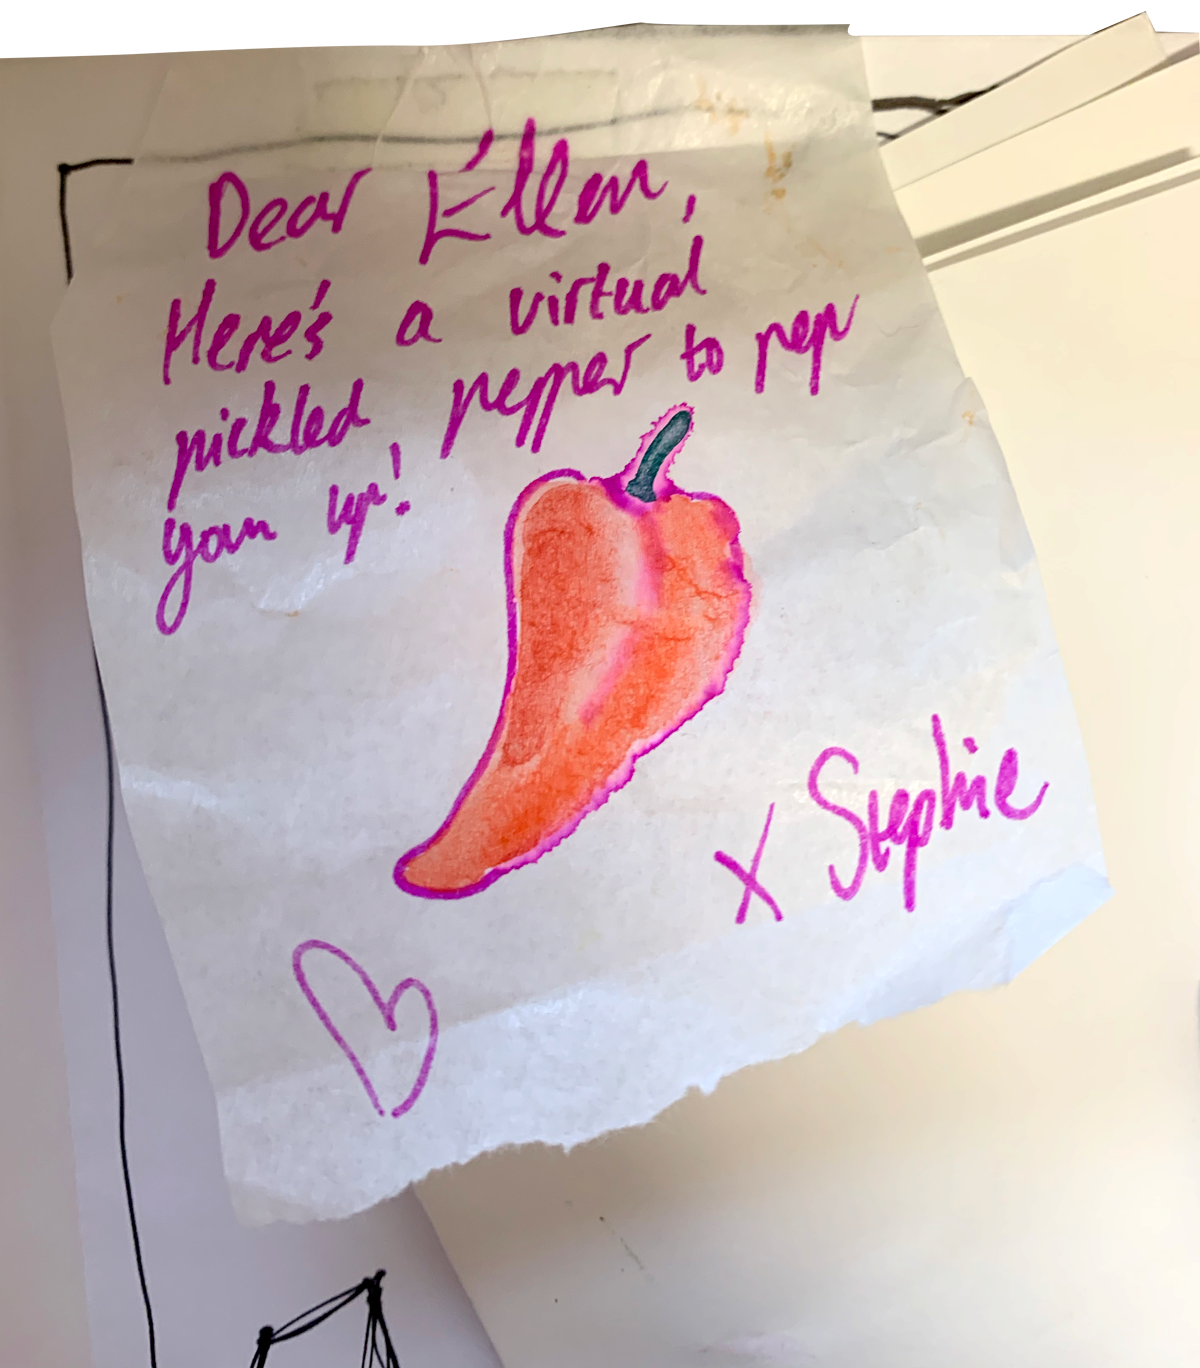 Dear Éllen,
Here's a virtual
pickled pepper to pep
you up!
X Stephie